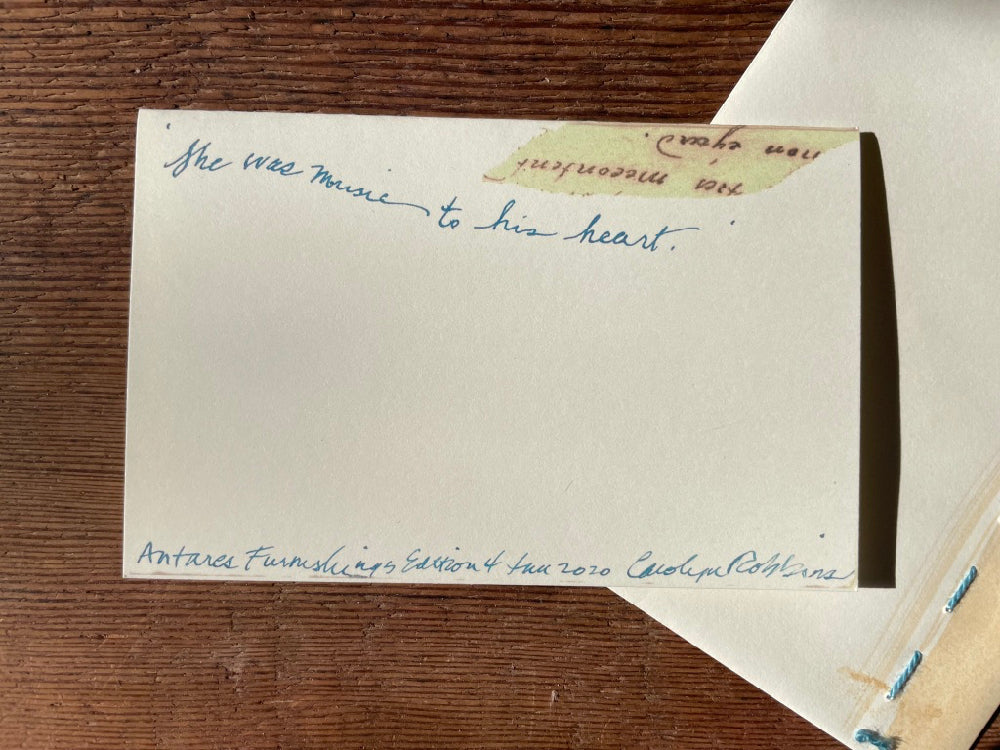 She was music to his heart.
non
mecontent
Antares Furnishings Edition 4 Jan 2020 Carolyn Robbins